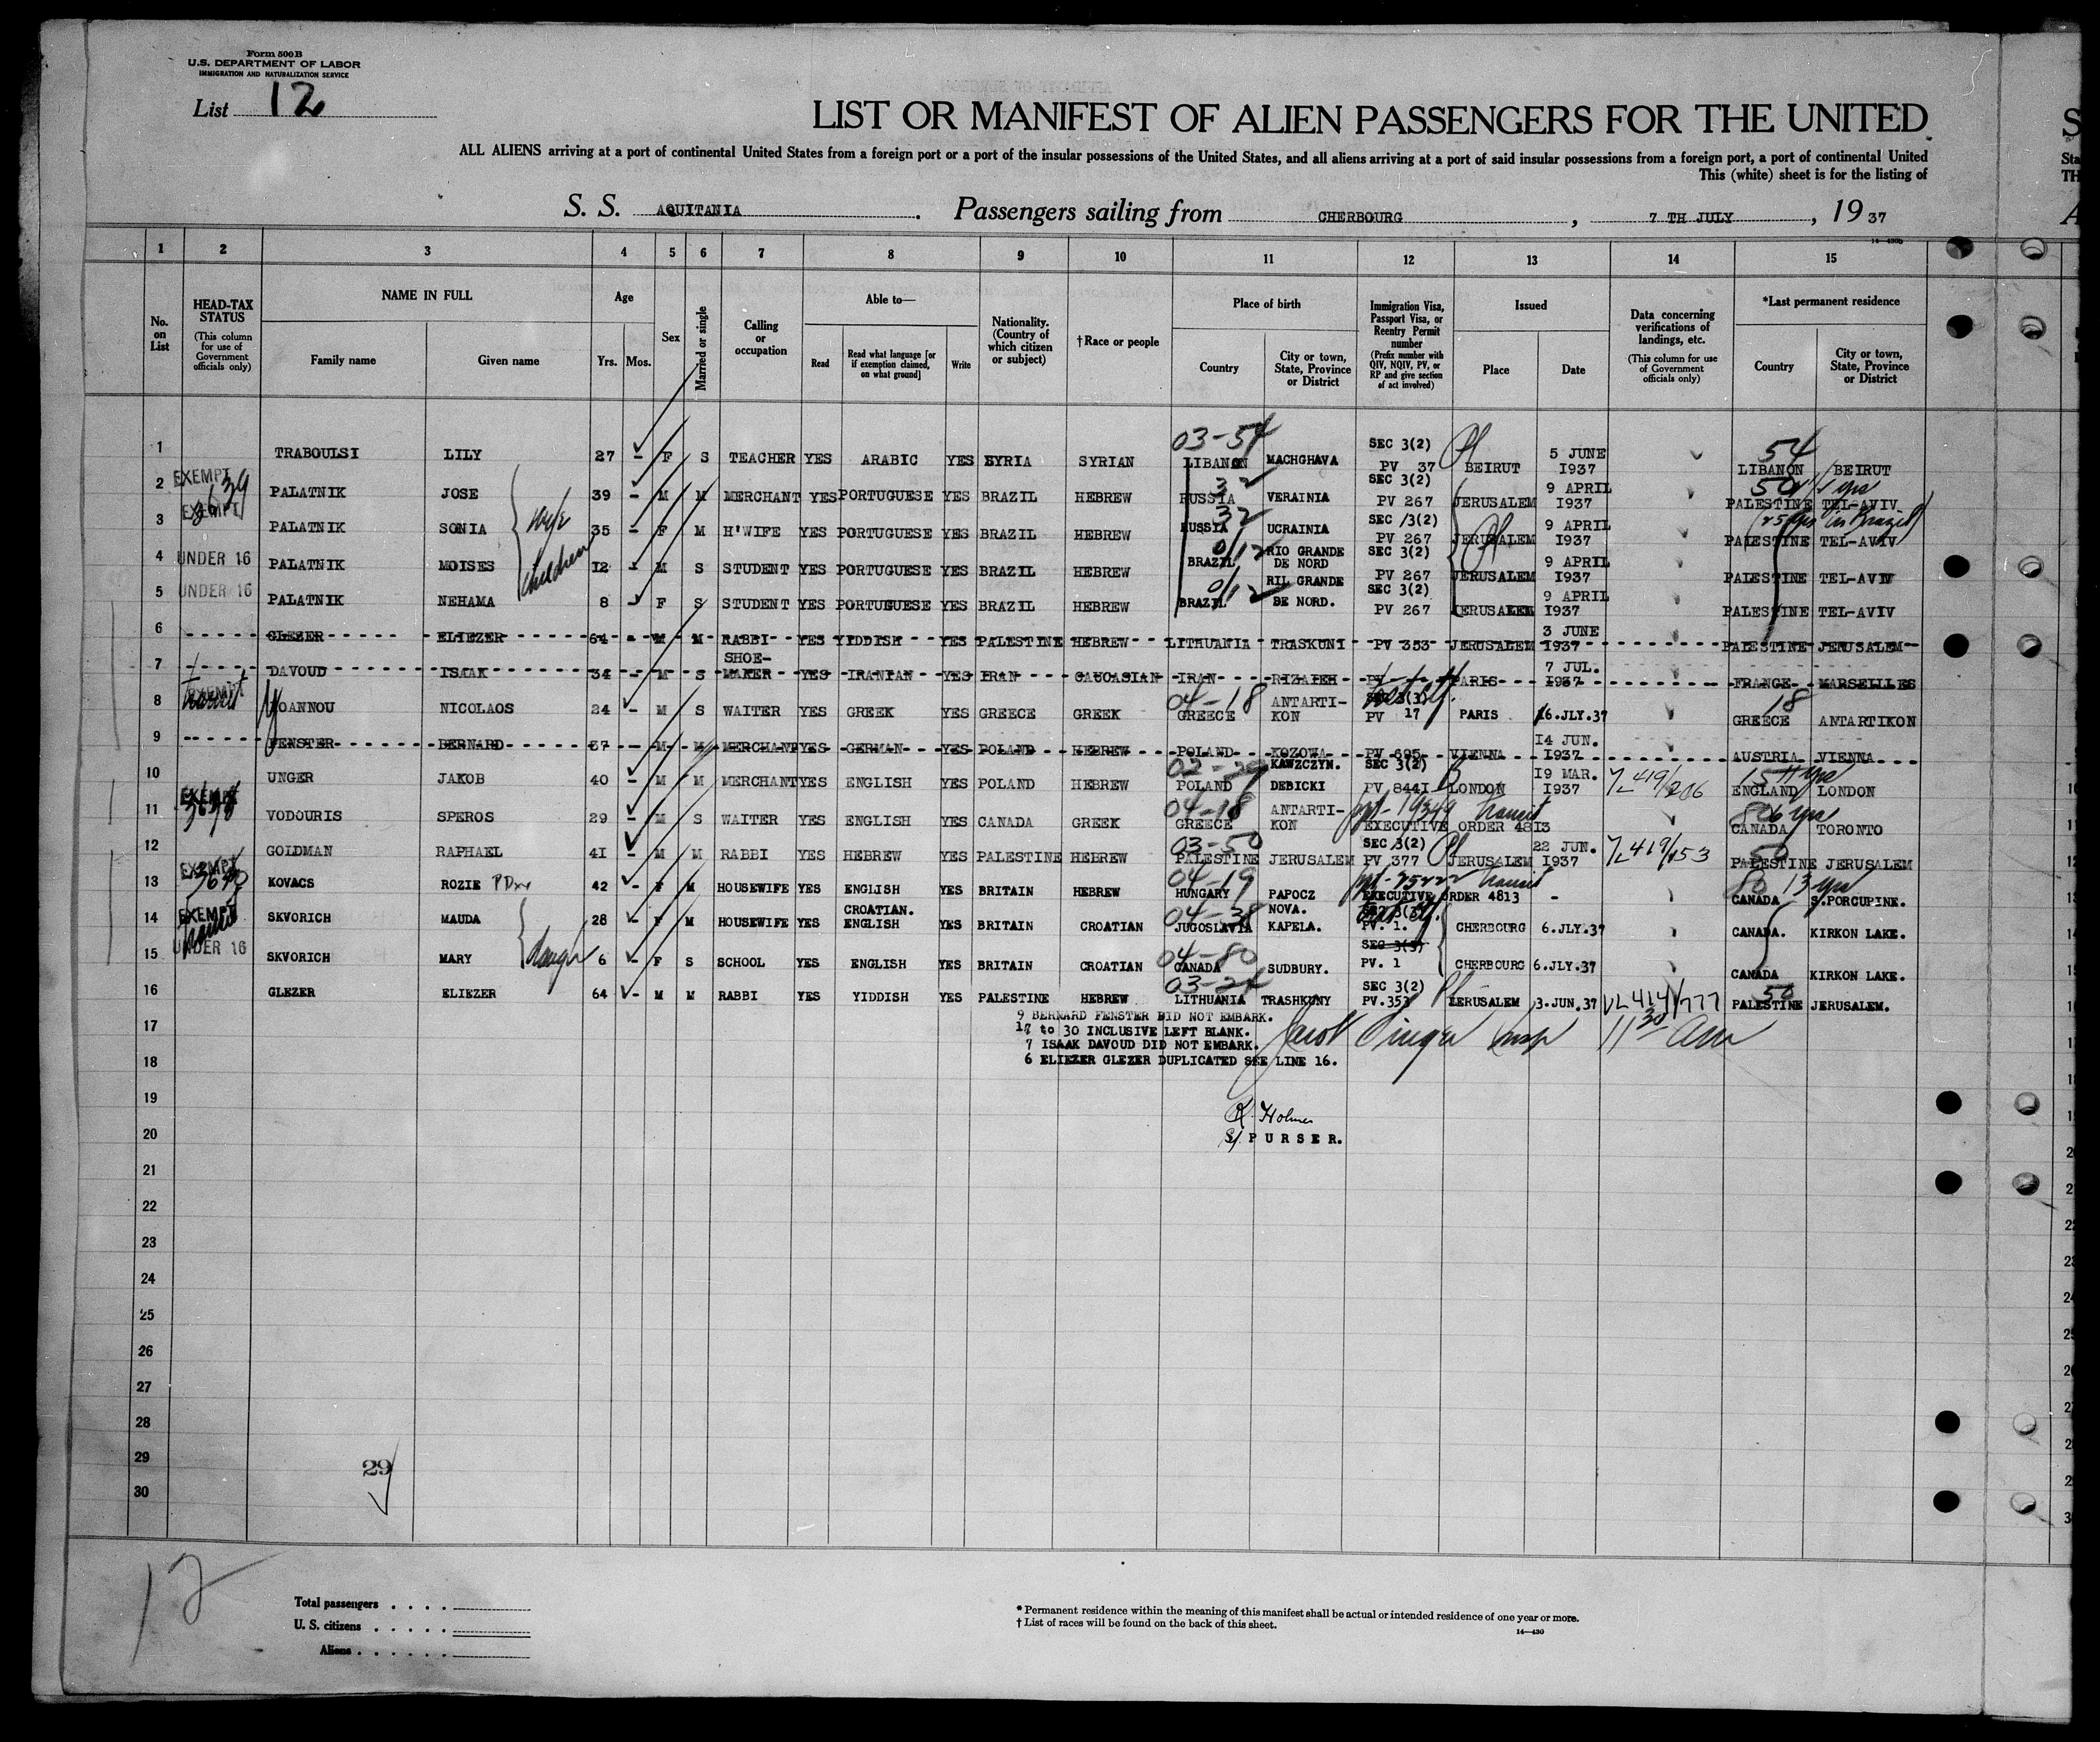 Form 500 B
U.S. DEPARTMENT OF LABOR
IMMIGRATION AND NATURALIZATION SERVICE
List 12
LIST OR MANIFEST OF ALIEN PASSENGERS FOR THE UNITED
ALL ALIENS arriving at a port of continental United States from a foreign port or a port of the insular possessions of the United States, and all aliens arriving at a port of said insular possessions from a foreign port, a port of continental United
This (white) sheet is for the listing of
S. S. AQUITANIA. Passengers sailing from CHERBOURG, 7 TH JULY, 19 37
14—430b
1 2 3 4 5 6 7 8 9 10 11 12 13 14 15
No. on List
HEAD-TAX STATUS (This column for use of Government officials only)
NAME IN FULL
Family name Given name
Age
Yrs. Mos.
Sex
Married or single
Calling or occupation
Able to—
Read Read what language [or if exemption claimed, on what ground] Write
Nationality. (Country of which citizen or subject)
†Race or people
Place of birth
Country City or town, State, Province or District
Immigration Visa, Passport Visa, or Reentry Permit number (Prefix number with QIV, NQIV, PV, or RP and give section of act involved)
Issued
Place Date
Data concerning verifications of landings, etc. (This column for use of Government officials only)
*Last permanent residence
Country City or town, State, Province or District
1 TRABOULSI LILY 27 - F S TEACHER YES ARABIC YES SYRIA SYRIAN 03-54 LIBANON MACHGHAVA SEC 3(2) PV 37 BEIRUT 5 JUNE 1937 54 LIBANON BEIRUT
2 EXEMPT 3639 PALATNIK JOSE 39 - M M MERCHANT YES PORTUGUESE YES BRAZIL HEBREW 32 RUSSIA VERAINIA SEC 3(2) PV 267 JERUSALEM 9 APRIL 1937 50 PALESTINE TEL-AVIV
3 EXEMPT PALATNIK SONIA wife 35 - F M H'WIFE YES PORTUGUESE YES BRAZIL HEBREW 32 RUSSIA UCRAINIA SEC 3(2) PV 267 JERUSALEM 9 APRIL 1937 (25 yrs in Brazil) PALESTINE TEL-AVIV
4 UNDER 16 PALATNIK MOISES children 12 - M S STUDENT YES PORTUGUESE YES BRAZIL HEBREW 0/12 BRAZIL RIO GRANDE DE NORD SEC 3(2) PV 267 JERUSALEM 9 APRIL 1937 PALESTINE TEL-AVIV
5 UNDER 16 PALATNIK NEHAMA 8 - F S STUDENT YES PORTUGUESE YES BRAZIL HEBREW 0/12 BRAZIL RIL GRANDE DE NORD. SEC 3(2) PV 267 JERUSALEM 9 APRIL 1937 PALESTINE TEL-AVIV
6 GLEZER ELIEZER 64 - M M RABBI YES YIDDISH YES PALESTINE HEBREW LITHUANIA TRASKUNI PV 353 JERUSALEM 3 JUNE 1937 PALESTINE JERUSALEM
7 DAVOUD ISAAK 34 - M S SHOE-MAKER YES IRANIAN YES IRAN CAUCASIAN IRAN RIZAIEH PV PARIS 7 JUL. 1937 FRANCE MARSEILLES
8 EXEMPT transit YOANNOU NICOLAOS 24 - M S WAITER YES GREEK YES GREECE GREEK 04-18 GREECE ANTARTI-KON SEC 3(3) PV 17 PARIS 16.JLY.37 18 GREECE ANTARTIKON
9 FENSTER BERNARD 37 - M M MERCHANT YES GERMAN YES POLAND HEBREW POLAND KOZOWA PV 695 VIENNA 14 JUN. 1937 AUSTRIA VIENNA
10 UNGER JAKOB 40 - M M MERCHANT YES ENGLISH YES POLAND HEBREW POLAND KAWZCZYN. DEBICKI SEC 3(2) PV 8441 LONDON 19 MAR. 1937 419/206 15 11 yrs ENGLAND LONDON
11 EXEMPT 3678 VODOURIS SPEROS 29 - M S WAITER YES ENGLISH YES CANADA GREEK 04-18 GREECE ANTARTI-KON transit EXECUTIVE ORDER 4813 CANADA TORONTO
12 GOLDMAN RAPHAEL 41 - M M RABBI YES HEBREW YES PALESTINE HEBREW 03-50 PALESTINE JERUSALEM SEC 3(2) PV 377 JERUSALEM 22 JUN. 1937 419/153 50 PALESTINE JERUSALEM
13 EXEMPT KOVACS ROZIE 42 - F M HOUSEWIFE YES ENGLISH YES BRITAIN HEBREW 04-19 HUNGARY PAPOCZ transit EXECUTIVE ORDER 4813 - 80 13 yrs CANADA S.PORCUPINE.
14 EXEMPT transit SKVORICH MAUDA 28 - F M HOUSEWIFE YES CROATIAN. ENGLISH YES BRITAIN CROATIAN 04-38 JUGOSLAVIA NOVA. KAPELA. PV. 1. CHERBOURG 6.JLY.37 CANADA. KIRKON LAKE.
15 UNDER 16 SKVORICH MARY 6 - F S SCHOOL YES ENGLISH YES BRITAIN CROATIAN 04-80 CANADA SUDBURY. SEC 3(3) PV. 1 CHERBOURG 6.JLY.37 CANADA KIRKON LAKE.
16 GLEZER ELIEZER 64 - M M RABBI YES YIDDISH YES PALESTINE HEBREW LITHUANIA TRASHKUNY SEC 3(2) PV.353 JERUSALEM 3.JUN.37 50 PALESTINE JERUSALEM.
9 BERNARD FENSTER DID NOT EMBARK.
17
17 to 30 INCLUSIVE LEFT BLANK.
7 ISAAK DAVOUD DID NOT EMBARK.
6 ELIEZER GLEZER DUPLICATED SEE LINE 16.
Jacob Singer Insp 11 30 am
18
19
Holmes
20
PURSER.
21
22
23
24
25
26
27
28
29
29
30
12
Total passengers
U. S. citizens
Aliens
* Permanent residence within the meaning of this manifest shall be actual or intended residence of one year or more.
† List of races will be found on the back of this sheet.
14—430